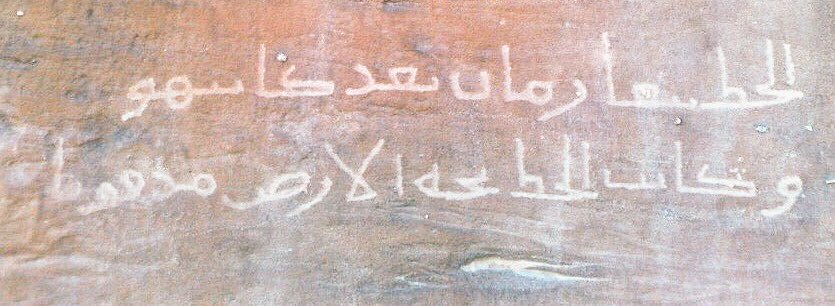 الخط يبقا زمان بعد كاتبهو
وكاتب الخط تحه الارض مدفونا